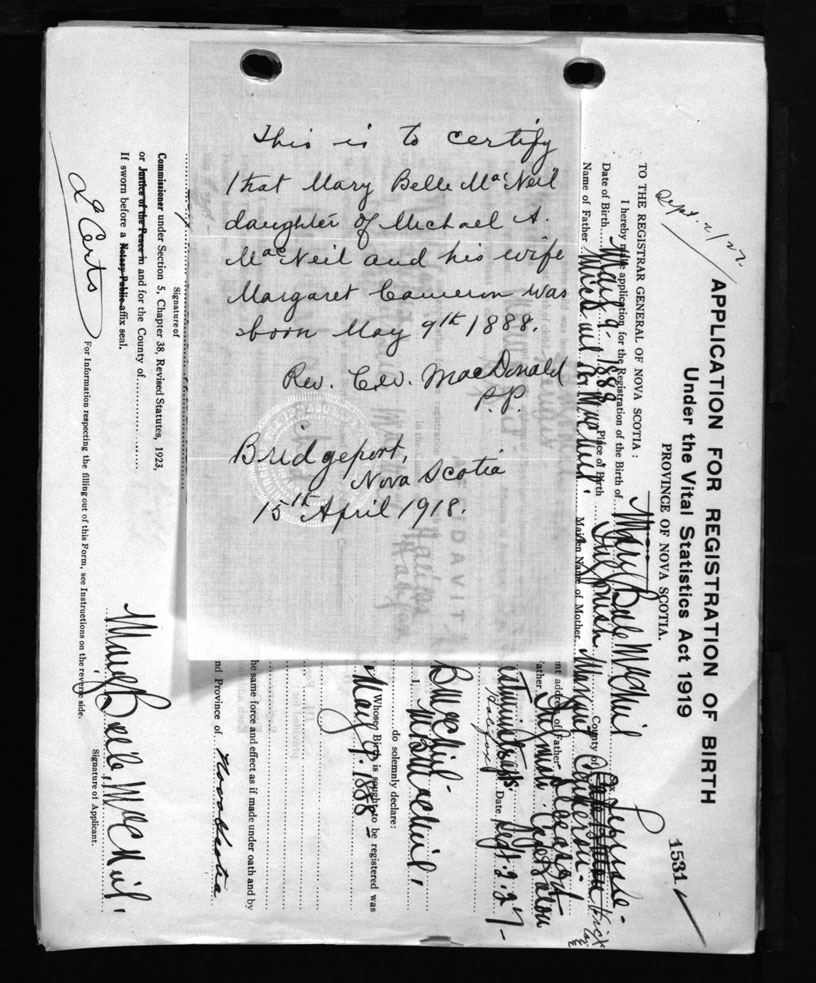 This is to certify
that Mary Belle MacNeil
daughter of Michael A.
MacNeil and his wife
Margaret Cameron was
born May 9th 1888.
Rev. C. W. MacDonald
P.P.
Bridgeport,
Nova Scotia
15th April 1918.
1531
APPLICATION FOR REGISTRATION OF BIRTH
Under the Vital Statistics Act 1919
PROVINCE OF NOVA SCOTIA.
Sept. 2/27.
TO THE REGISTRAR GENERAL OF NOVA SCOTIA :
I hereby make application for the Registration of the Birth of Mary Belle McNeil
Date of Birth May 9- 1888 Place of Birth County of
Name of Father Michael McNeil. Maiden Name of Mother Margaret Cameron.
address of Father Deceased
Halifax Date Sept. 2. 27-
AFFIDAVIT
Halifax
B McNeil
I, McNeil,
do solemnly declare:
Whose Birth is sought to be registered was
May 9. 1888-
the same force and effect as if made under oath and by
nd Province of Nova Scotia
Signature of
Commissioner under Section 5, Chapter 38, Revised Statutes, 1923,
or Justice of the Peace in and for the County of
If sworn before a Notary Public affix seal.
Mary Belle McNeil.
Signature of Applicant.
2 Certs
For Information respecting the filling out of this Form, see Instructions on the reverse side.